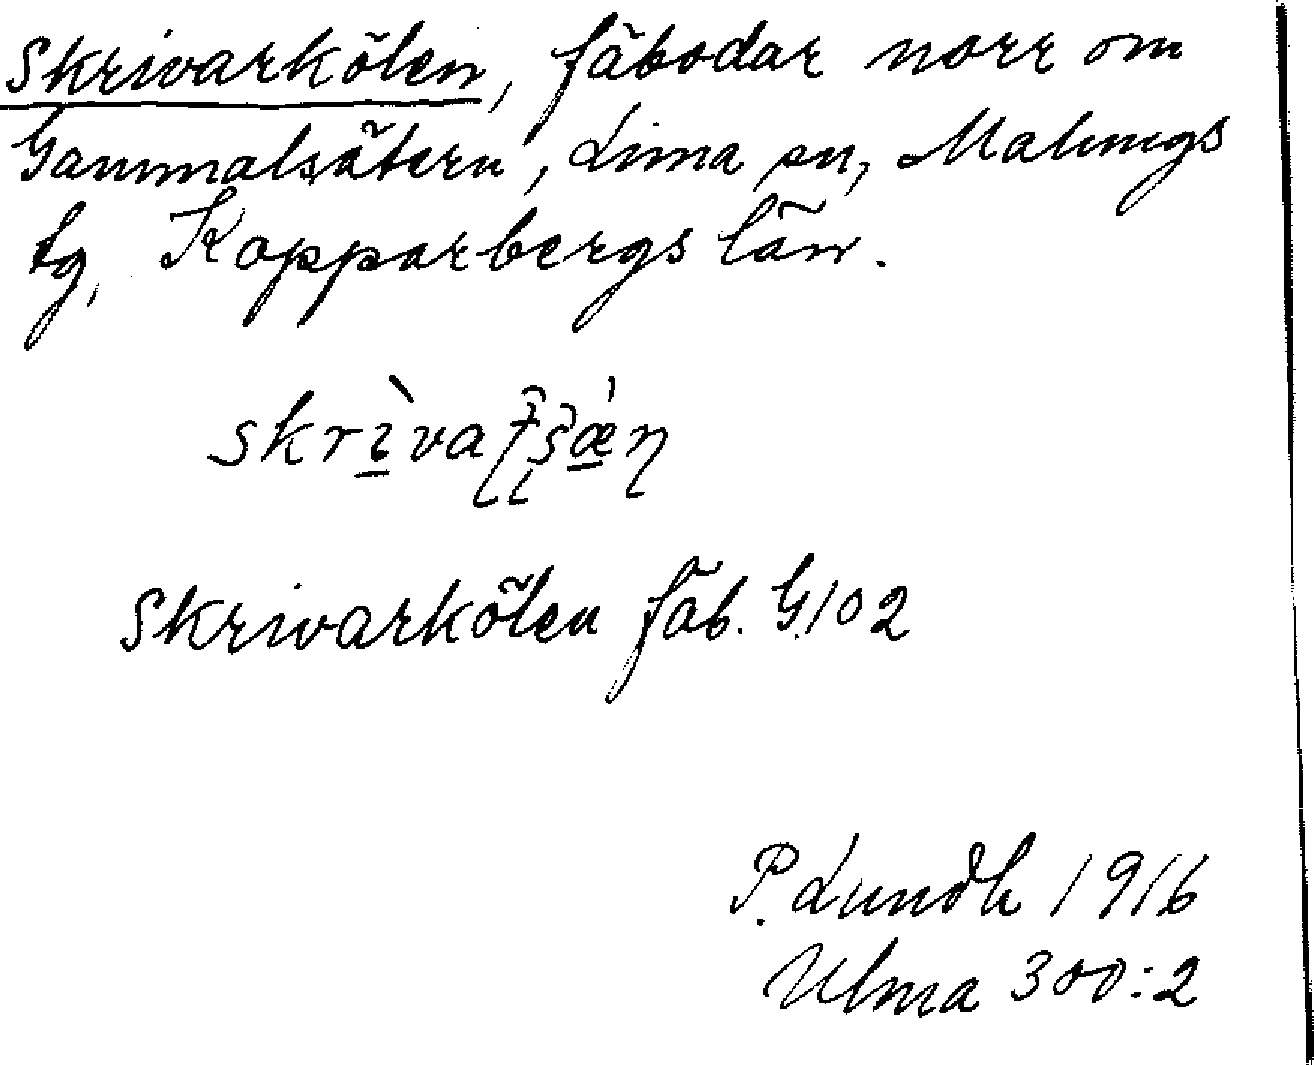 Skrivarkölen, fäbodar norr om
Gammalsätern, Lima sn, Malungs
tg, Kopparbergs län.
Skrivarkölen fäb. G102
P. Lundh 1916
Ulma 300:2